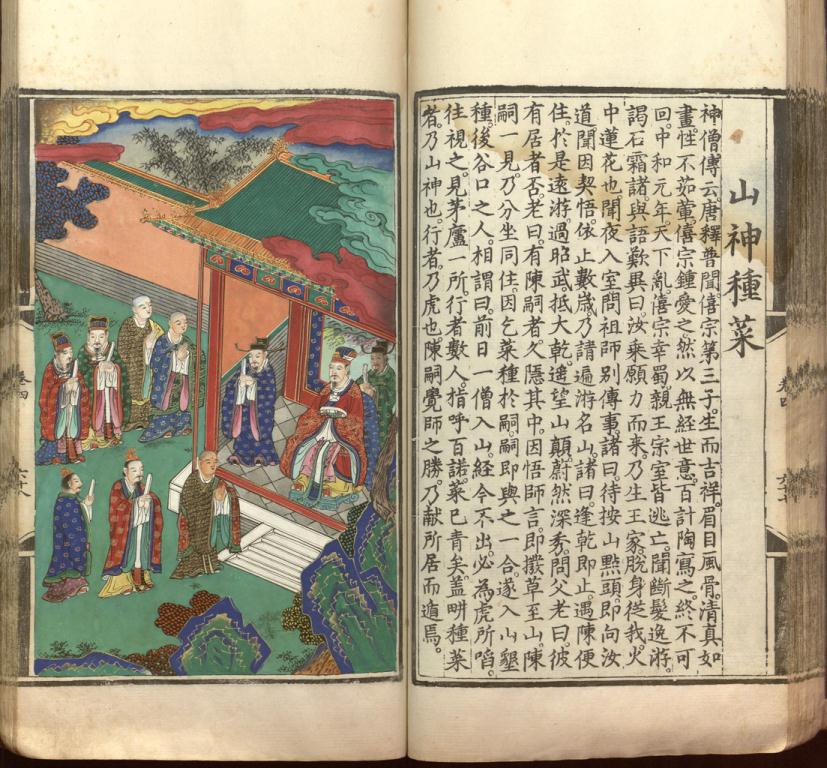 山神種菜
神僧傳云。唐釋普聞。僖宗第三子。生而吉祥。眉目風骨。清真如
畫。性不茹葷。僖宗鍾愛之。然以無經世意。百計陶寫之。終不可
回。中和元年。天下亂。僖宗幸蜀。親王宗室皆逃亡。聞斷髮逸游。
謁石霜諸。與語歎異曰。汝乘願力而來。乃生王家。脫身從我。火
中蓮花也。聞夜入室。問祖師別傳事。諸曰。待按山點頭。即向汝
道。聞因契悟。依止數歲。乃請遍游名山。諸曰。逢乾即止。遇陳便
住。於是遠游。過昭武。抵大乾。遙望山顛。蔚然深秀。問父老曰。彼
有居者否。老曰。有陳嗣者。久隱其中。因悟師言。即撥草至山。陳
嗣一見。乃分坐同住。因乞菜種於嗣。嗣即與之一合。遂入山墾
種。後谷口之人。相謂曰。前日一僧入山。經今不出。必為虎所啗。
往視之。見茅廬一所。行者數人。指呼百諾。菜已青矣。蓋畊種菜
者。乃山神也。行者。乃虎也。陳嗣覺師之勝。乃献所居而遁焉。
卷四